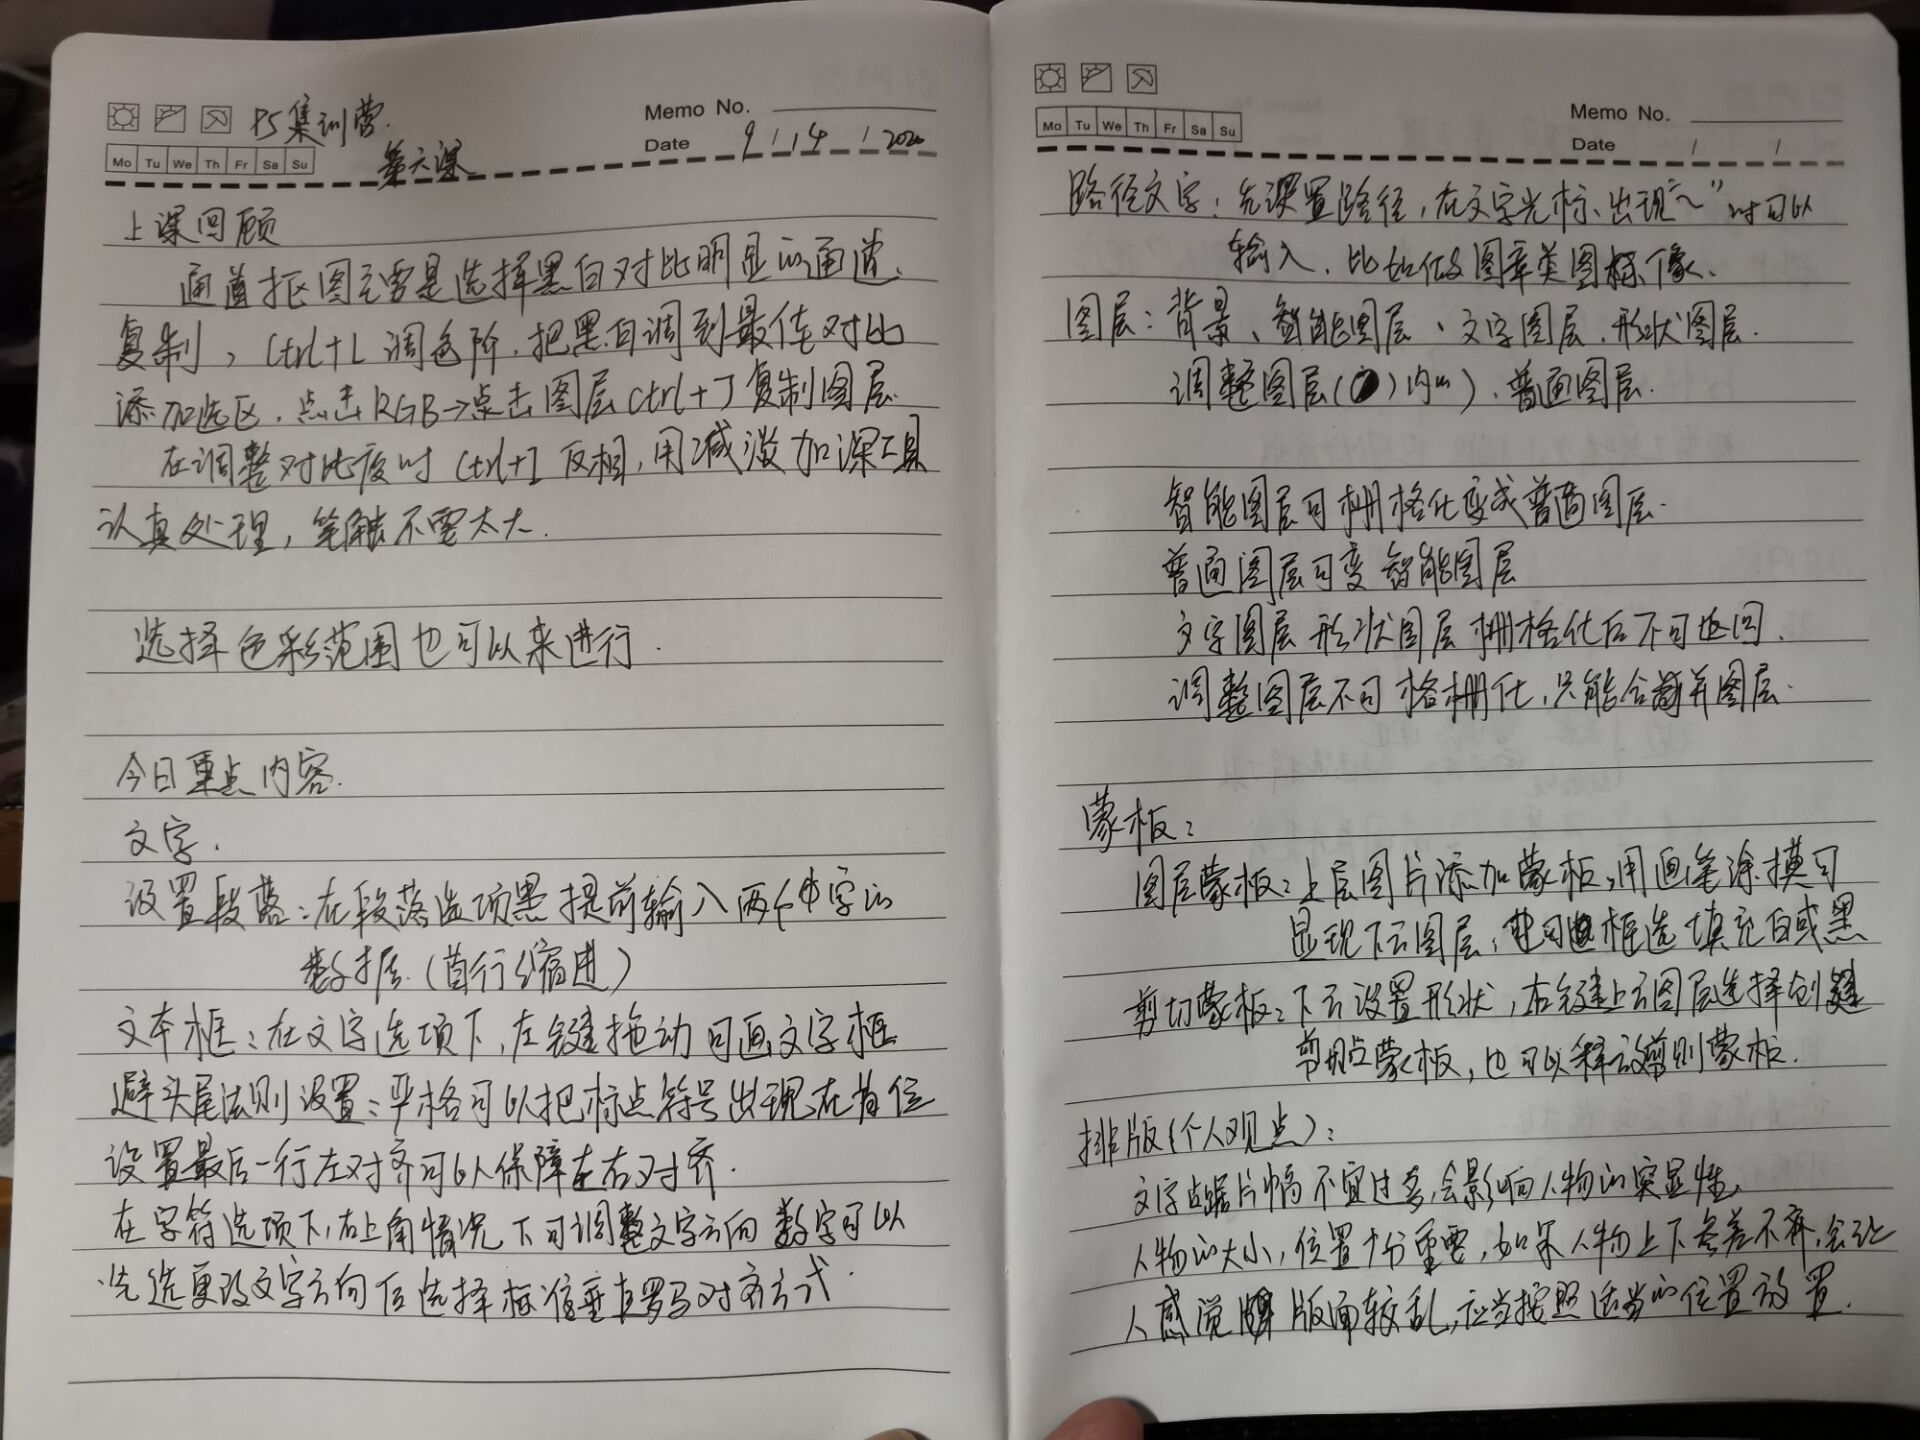 PS集训营.
Memo No.
Mo Tu We Th Fr Sa Su
第六课
Date 9 / 14 / 2020
上课回顾
通道抠图主要是选择黑白对比明显的通道.
复制, Ctrl+L 调色阶. 把黑白调到最佳对比
添加选区. 点击RGB→点击图层Ctrl+J复制图层.
在调整对比度时 Ctrl+I 反相, 用减淡加深工具
认真处理, 笔触不要太大.
选择色彩范围也可以来进行.
今日重点内容.
文字.
设置段落: 在段落选项里提前输入两个字的
数据. (首行缩进)
文本框: 在文字选项下, 左键拖动可画文字框
避头尾法则设置: 严格可以把标点符号出现在首位
设置最后一行左对齐可以保障左右对齐.
在字符选项下, 右上角情况下可调整文字方向 数字可以
先选更改文字方向后选择标准垂直罗马对齐方式.
Memo No.
Mo Tu We Th Fr Sa Su
Date / /
路径文字: 先设置路径, 在文字光标、出现"~"时可以
输入. 比如做图章类图标像.
图层: 背景、智能图层、文字图层. 形状图层.
调整图层( )内的). 普通图层.
智能图层可栅格化变成普通图层.
普通图层可变智能图层
文字图层 形状图层 栅格化后不可返回.
调整图层不可格栅化, 只能合并图层.
蒙板:
图层蒙板: 上层图片添加蒙板, 用画笔涂摸可
显现下云图层, 也可 框选填充白或黑
剪切蒙板: 下云设置形状, 右键上云图层选择创建
剪贴蒙板, 也可以释放剪则蒙板.
排版(个人观点):
文字占据片幅不宜过多, 会影响人物的突显性,
人物的大小, 位置十分重要, 如果人物上下参差不齐, 会让
人感觉 版面较乱, 应当按照适当的位置放置.